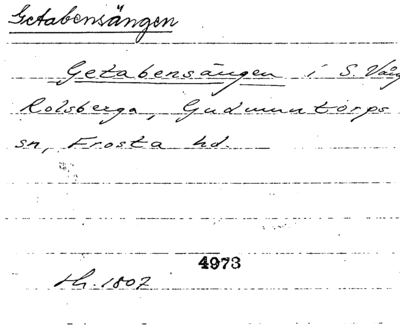 Getabensängen
Getabensängen i S.
Rolsberga, Gudmuntorps
sn, Frosta hd.
4973
1807